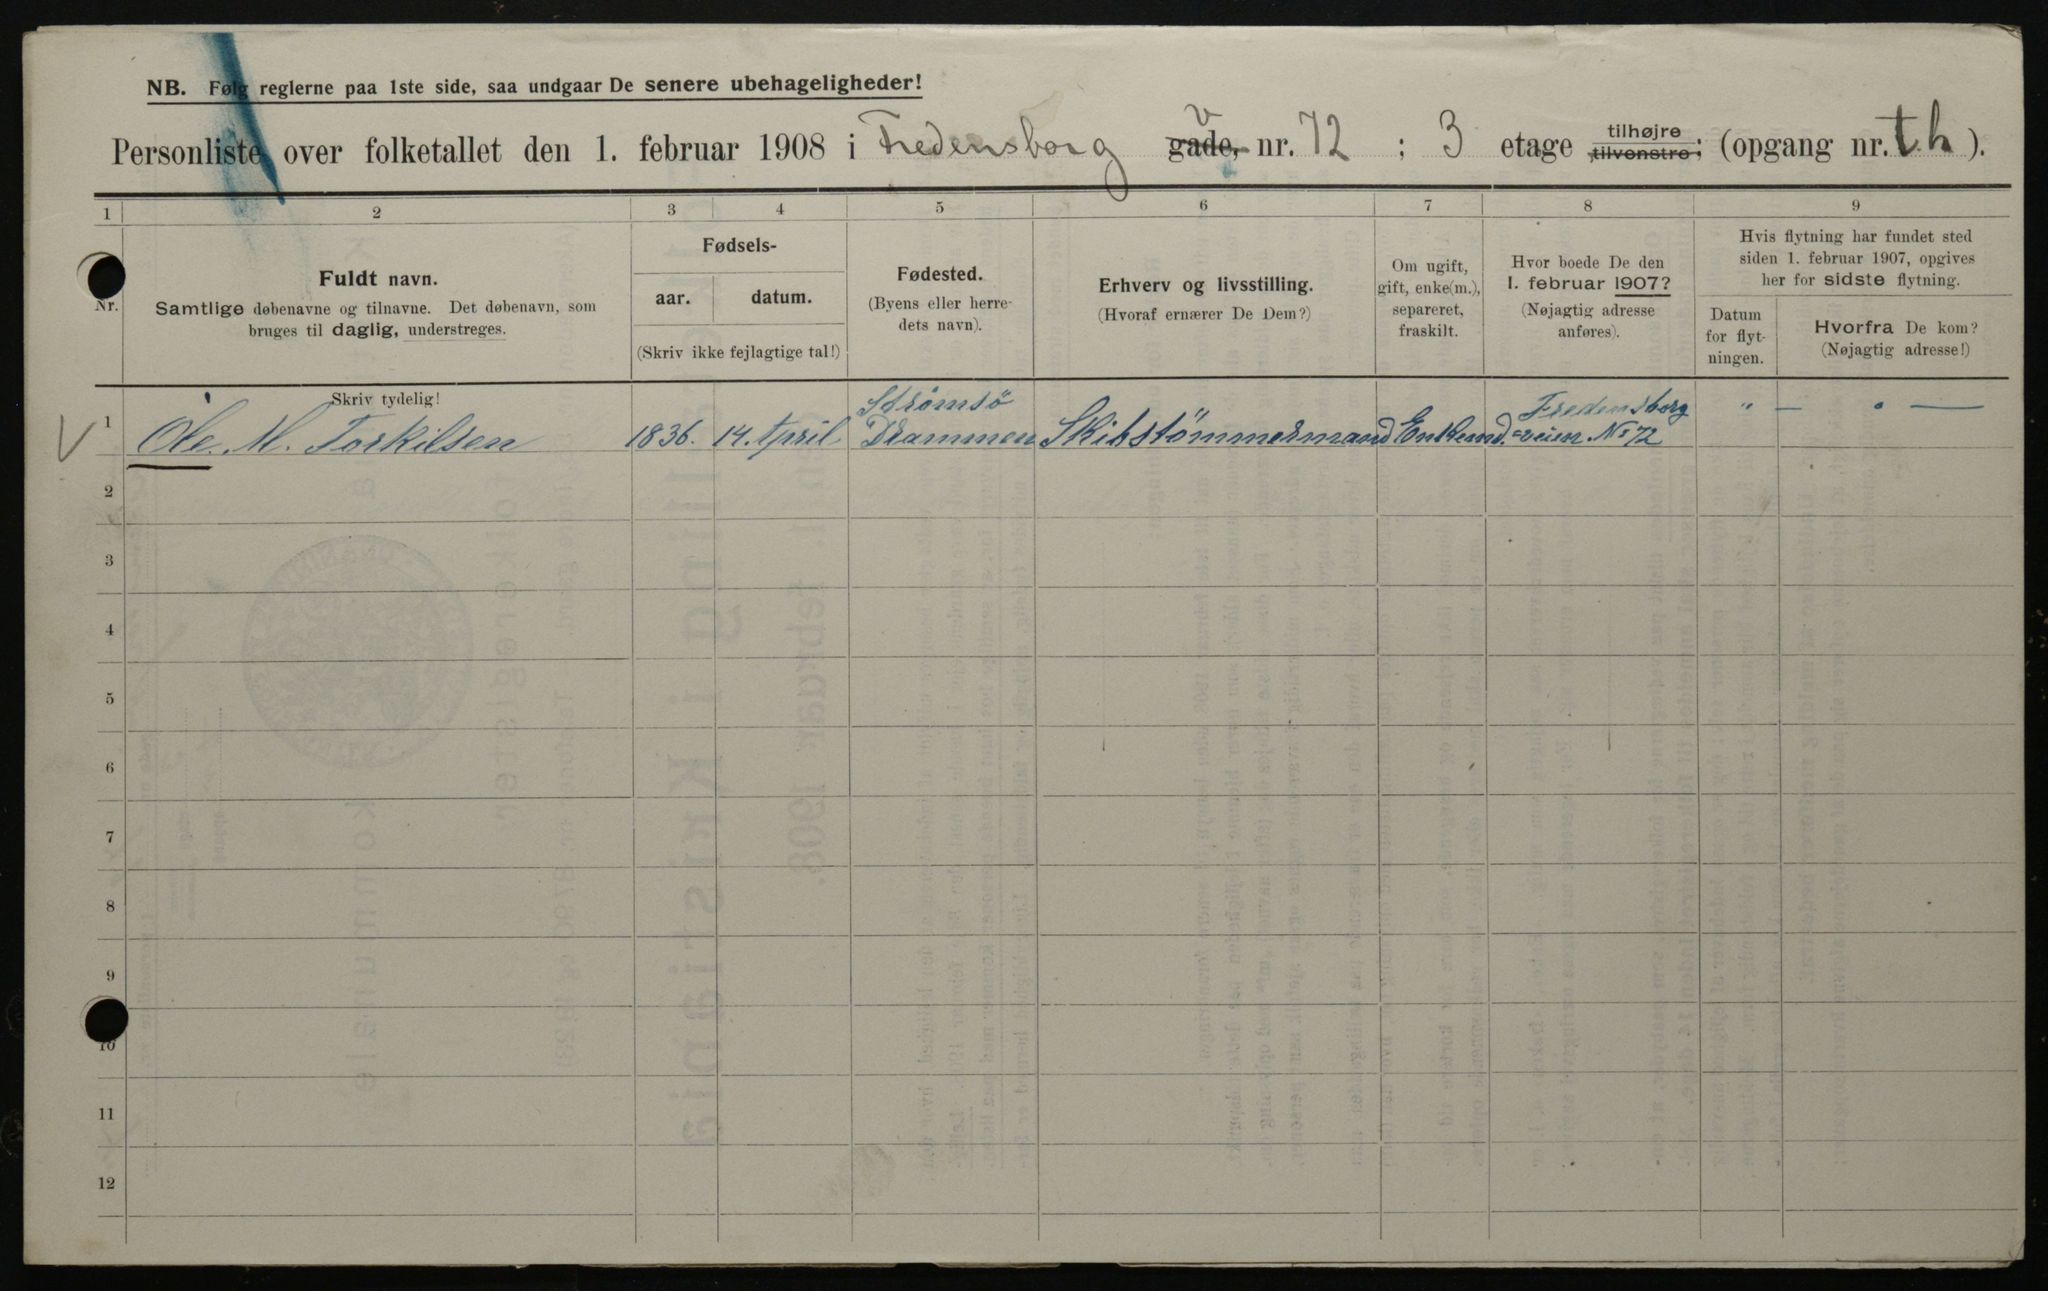 NB. Følg reglerne paa 1ste side, saa undgaar De senere ubehageligheder!
Personliste over folketallet den 1. februar 1908 i Fredensborg gade, v nr. 72 ; 3 etage tilhøjre tilvenstre; (opgang nr. t.h ).
1 2 3 4 5 6 7 8 9
Nr.
Fuldt navn.
Samtlige døbenavne og tilnavne. Det døbenavn, som
bruges til daglig, understreges.
Fødsels-
aar. datum.
(Skriv ikke fejlagtige tal!)
Fødested.
(Byens eller herre-
dets navn).
Erhverv og livsstilling.
(Hvoraf ernærer De Dem?)
Om ugift,
gift, enke(m.),
separeret,
fraskilt.
Hvor boede De den
1. februar 1907?
(Nøjagtig adresse
anføres).
Hvis flytning har fundet sted
siden 1. februar 1907, opgives
her for sidste flytning.
Datum
for flyt-
ningen.
Hvorfra De kom?
(Nøjagtig adresse!)
Skriv tydelig!
Strømsö Fredensborg " — " —
1 Ole. M. Torkilsen 1836. 14. April Drammen Skibstömmermand Enkemd. =veien No 72
2
3
4
5
6
7
8
9
10
11
12